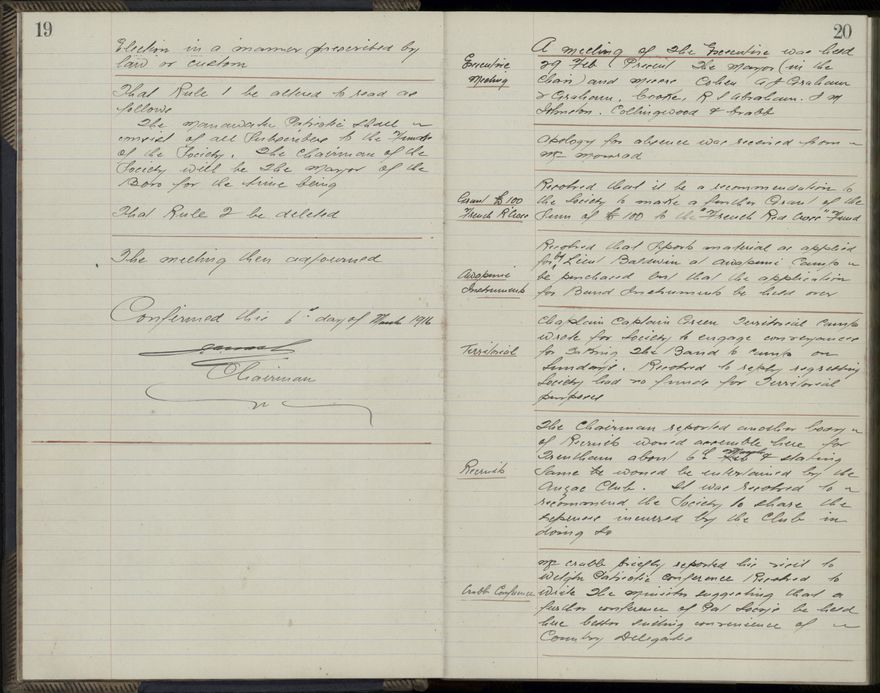 19
Election in a manner prescribed by
law or custom
That Rule 1 be altered to read as
follows
The Manawatu Patriotic Shall
consist of all Subscribers to the Funds
of the Society. The Chairman of the
Society will be the Mayor of the
Boro for the time being
That Rule 2 be deleted
The meeting then adjourned
Confirmed this 6th day of March 1916
Chairman
20
Executive
Meeting
A meeting of the Executive was held
29 Feb Present The Mayor (in the
Chair) and Messrs Cohen A J Graham
& Graham, Cooke, R S Abraham. J M
Johnston, Collingwood & Crabb
Apology for absence was received from
Mr Monrad
Grant £100
French R Cross
Resolved that it be a recommendation to
the Society to make a further Grant of the
Sum of £100 to the "French Red Cross" Fund
Awapuni
Instruments
Resolved that Sports material as applied
for by Lieut Baldwin at Awapuni Camp
be purchased but that the application
for Band Instruments be held over
Territorial
Chaplain Captain Green Territorial Camp
wrote for Society to engage conveyances
for taking the Band to camp on
Sundays. Resolved to reply regretting
Society had no funds for Territorial
purposes
Recruits
The Chairman reported another body
of Recruits would assemble here for
Trentham about 6th March & stating
Same would be entertained by the
Anzac Club. It was resolved to
recommend the Society to share the
expenses incurred by the Club in
doing so
Crabb Conference
Mr Crabb briefly reported his visit to
Welgtn Patriotic Conference Resolved to
write the Minister suggesting that a
further conference of Pat Socys be held
here better suiting convenience of
Country Delegates